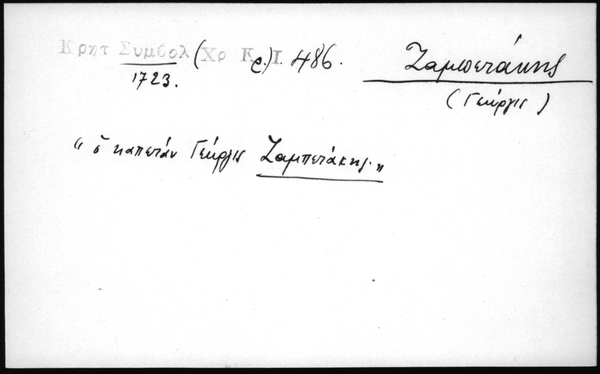 Κρητ Συμβολ (Χρ Κρ.) Ι. 486.
1723.
Ζαμπετάκης
(Γεώργις)
"ὁ καπετάν Γεώργις Ζαμπετάκης."